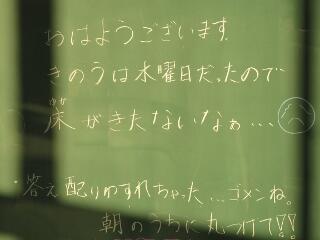 おはようございます.
きのうは水曜日だったので
床がきたないなぁ…
・答え配りわすれちゃった…ゴメンね。
朝のうちに丸つけて!!